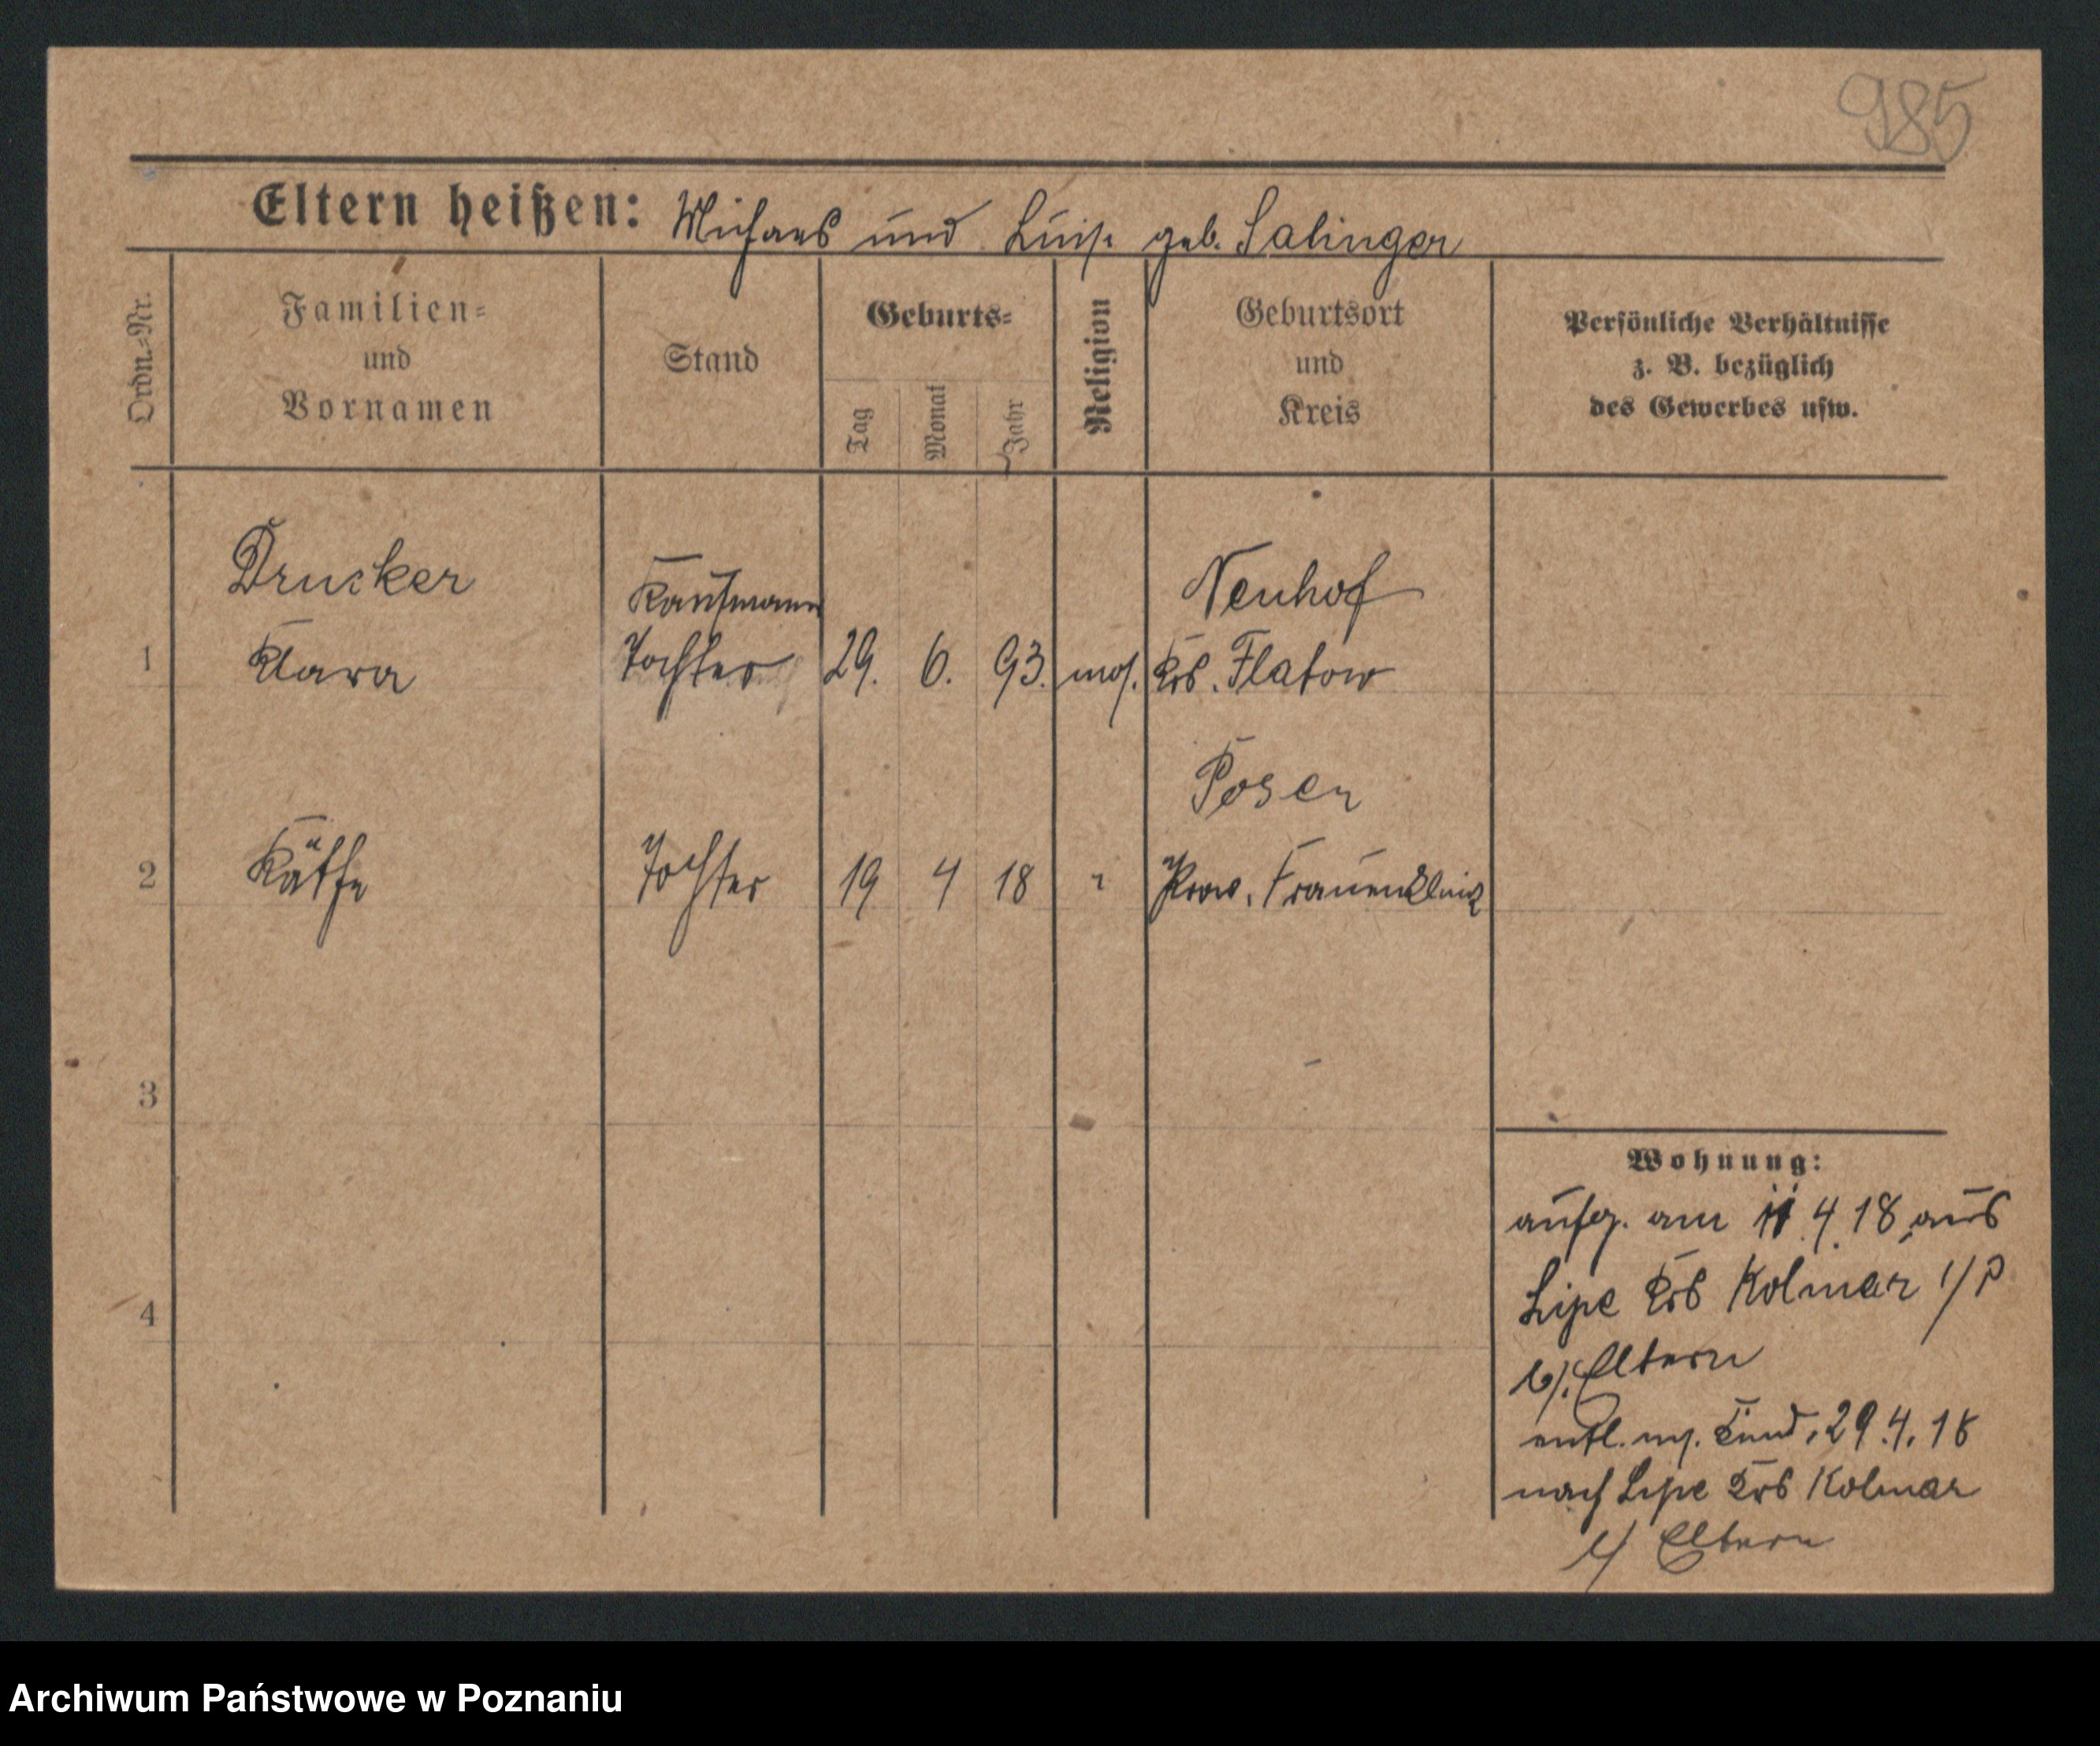 985
Eltern heißen: Michael und Luise geb. Salinger
Ordn.=Nr.
Familien=
und
Vornamen
Stand
Geburts=
Tag
Monat
Jahr
Religion
Geburtsort
und
Kreis
Persönliche Verhältnisse
z. B. bezüglich
des Gewerbes usw.
Drucker
Kaufmann
Neuhof
1 Klara Tochter 29. 6. 93. mos. Krs. Flatow
Posen
2 Käthe Tochter 19 4 18 " Prov. Frauenklinik
3
4
Wohnung:
aufg. am 11.4.18 aus
Lipe Krs Kolmar i/P
b/. Eltern
entl. m. Kind, 29.4.18
nach Lipe Krs Kolmar
Eltern
Archiwum Państwowe w Poznaniu